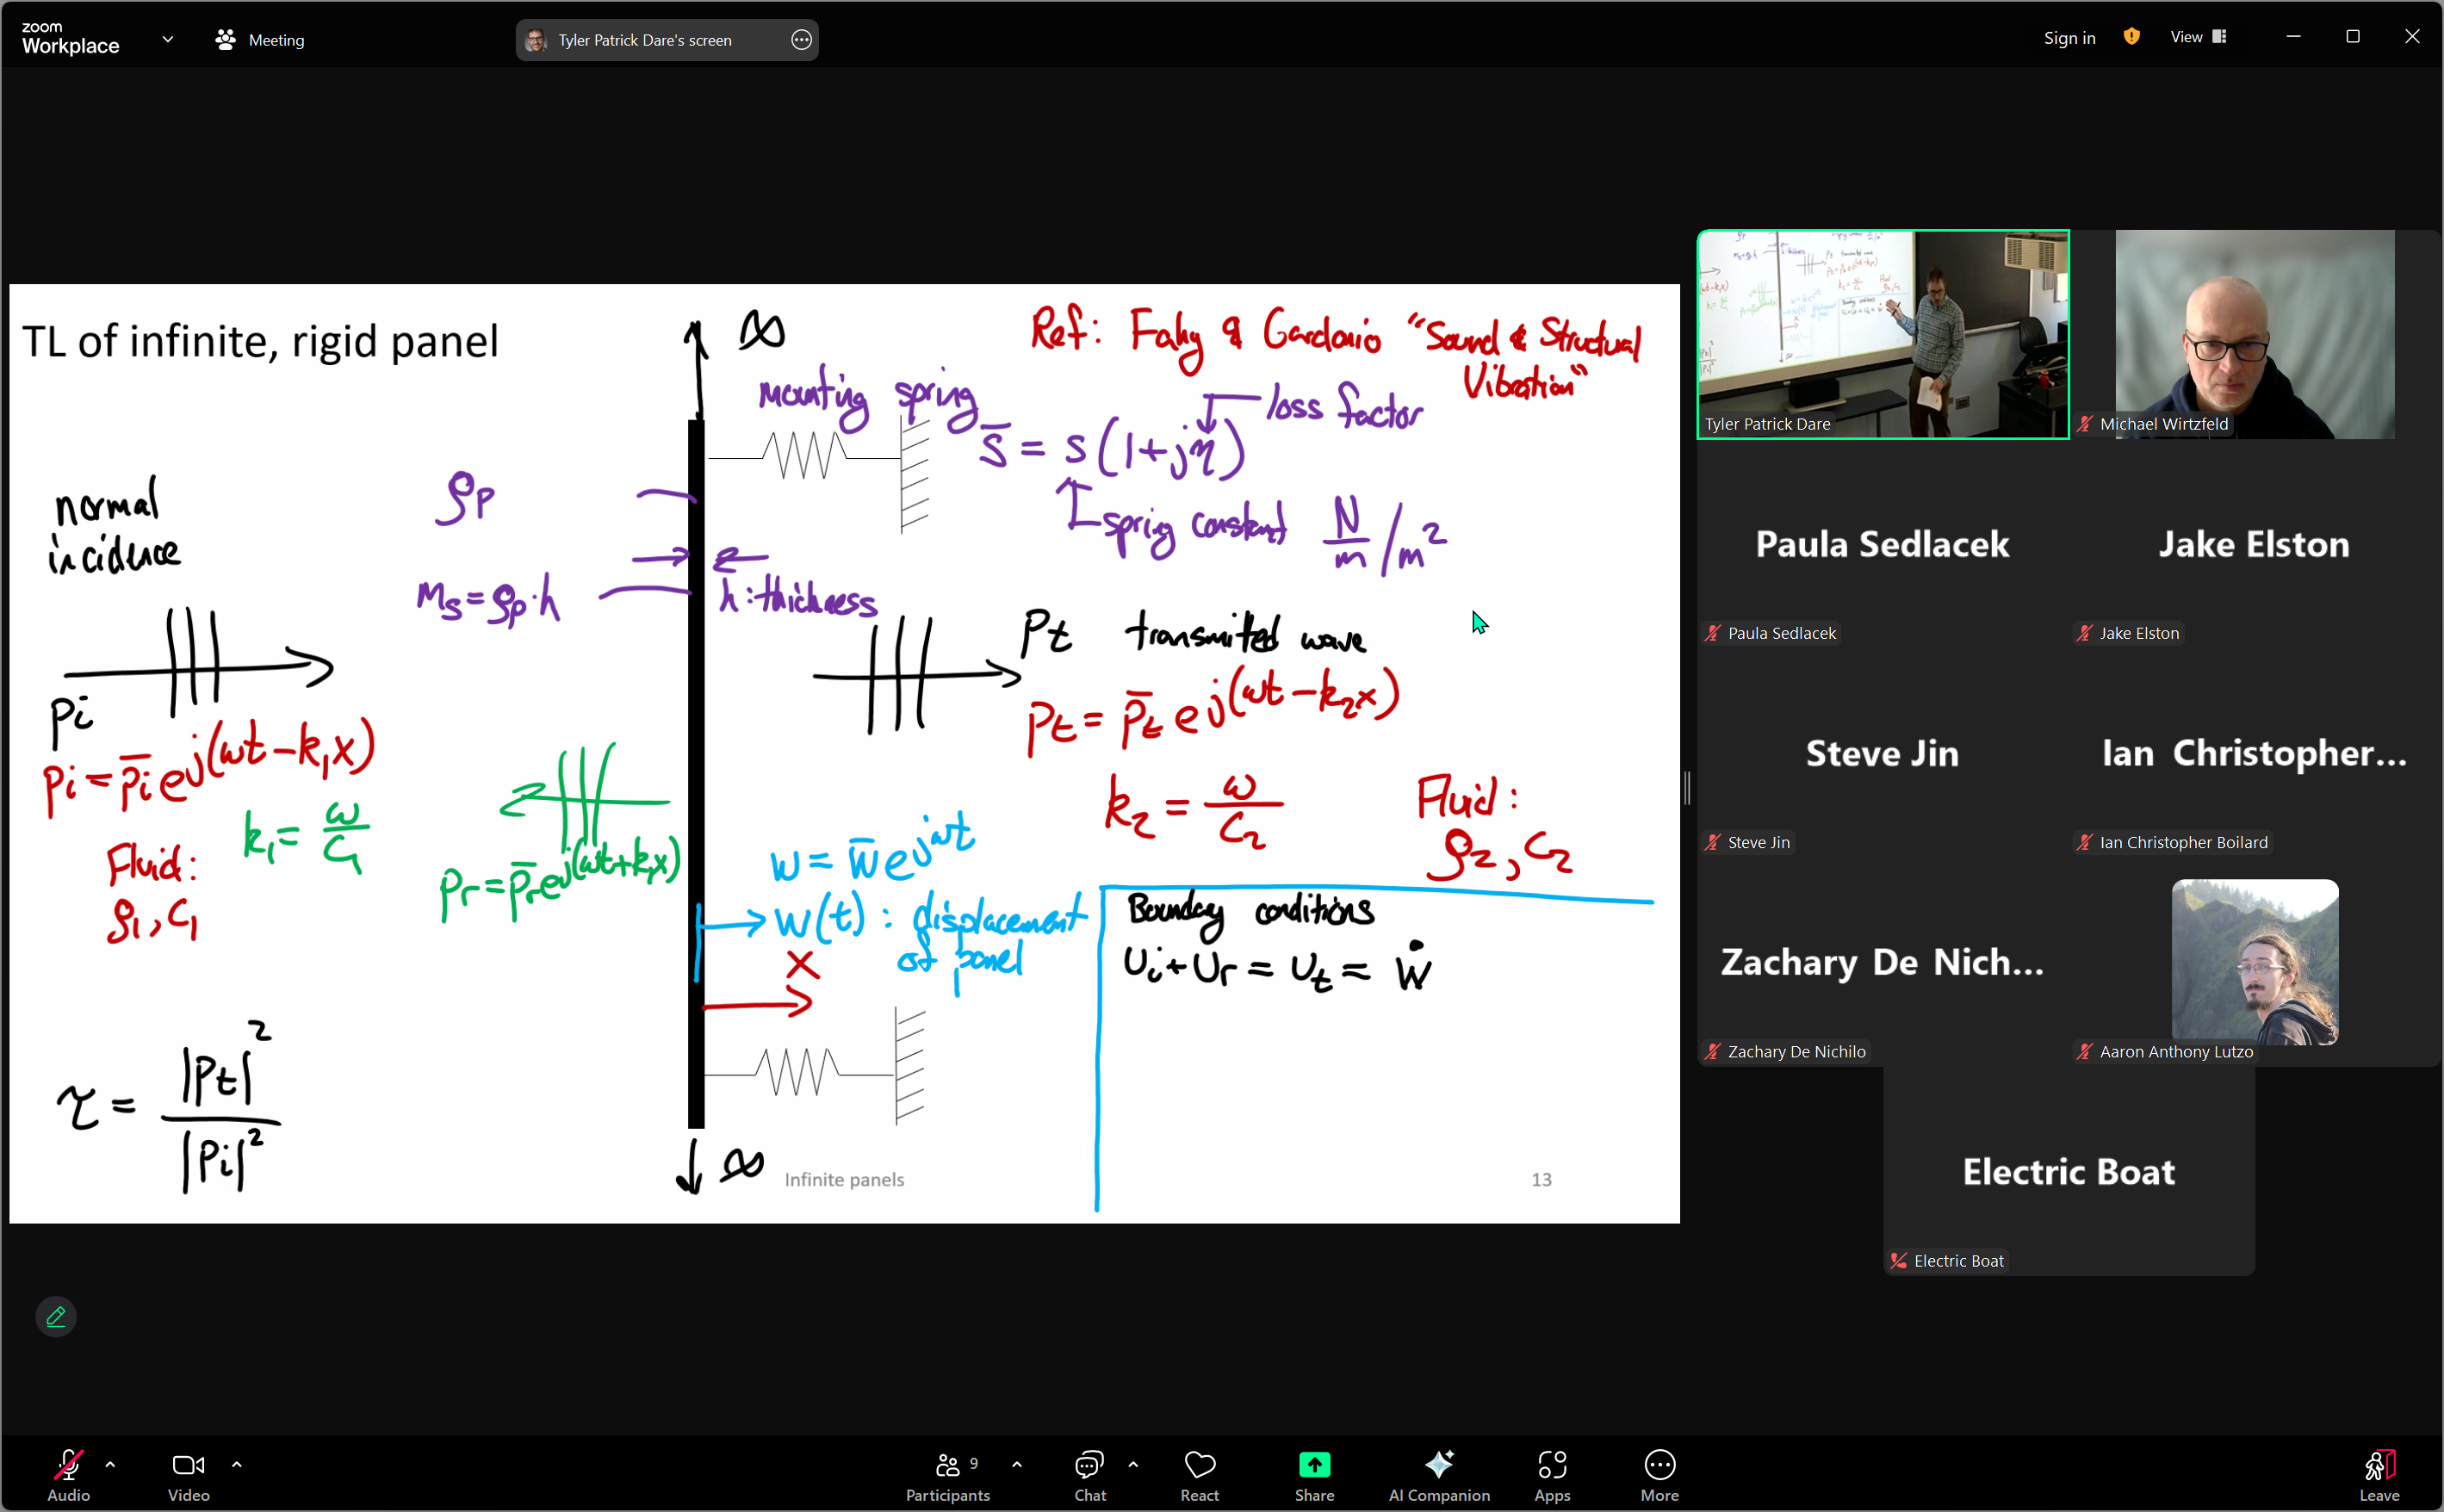 zoom
Workplace
Meeting
Tyler Patrick Dare's screen
Sign in
View
TL of infinite, rigid panel
∞
Ref: Fahy & Gardonio "Sound & Structural
Vibration"
mounting spring
s̄ = s(1+jη)
loss factor
spring constant N/m /m²
normal
incidence
ρp
Ms = ρp·h
h: thickness
Pi
Pi = p̄i e^j(ωt−k₁x)
k₁ = ω/c₁
Fluid:
ρ₁, c₁
Pr = p̄r e^j(ωt+k₁x)
Pt transmitted wave
Pt = p̄t e^j(ωt−k₂x)
k₂ = ω/c₂
Fluid:
ρ₂, c₂
w = w̄ e^jωt
w(t): displacement
of panel
x
Boundary conditions
Ui + Ur = Ut = ẇ
τ = |Pt|² / |Pi|²
∞
Infinite panels
13
Tyler Patrick Dare
Michael Wirtzfeld
Paula Sedlacek
Paula Sedlacek
Jake Elston
Jake Elston
Steve Jin
Steve Jin
Ian Christopher...
Ian Christopher Boilard
Zachary De Nich...
Zachary De Nichilo
Aaron Anthony Lutzo
Electric Boat
Electric Boat
Audio
Video
Participants
9
Chat
React
Share
AI Companion
Apps
More
Leave